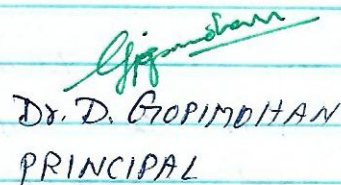 Gopimohan
Dr. D. GOPIMOHAN
PRINCIPAL